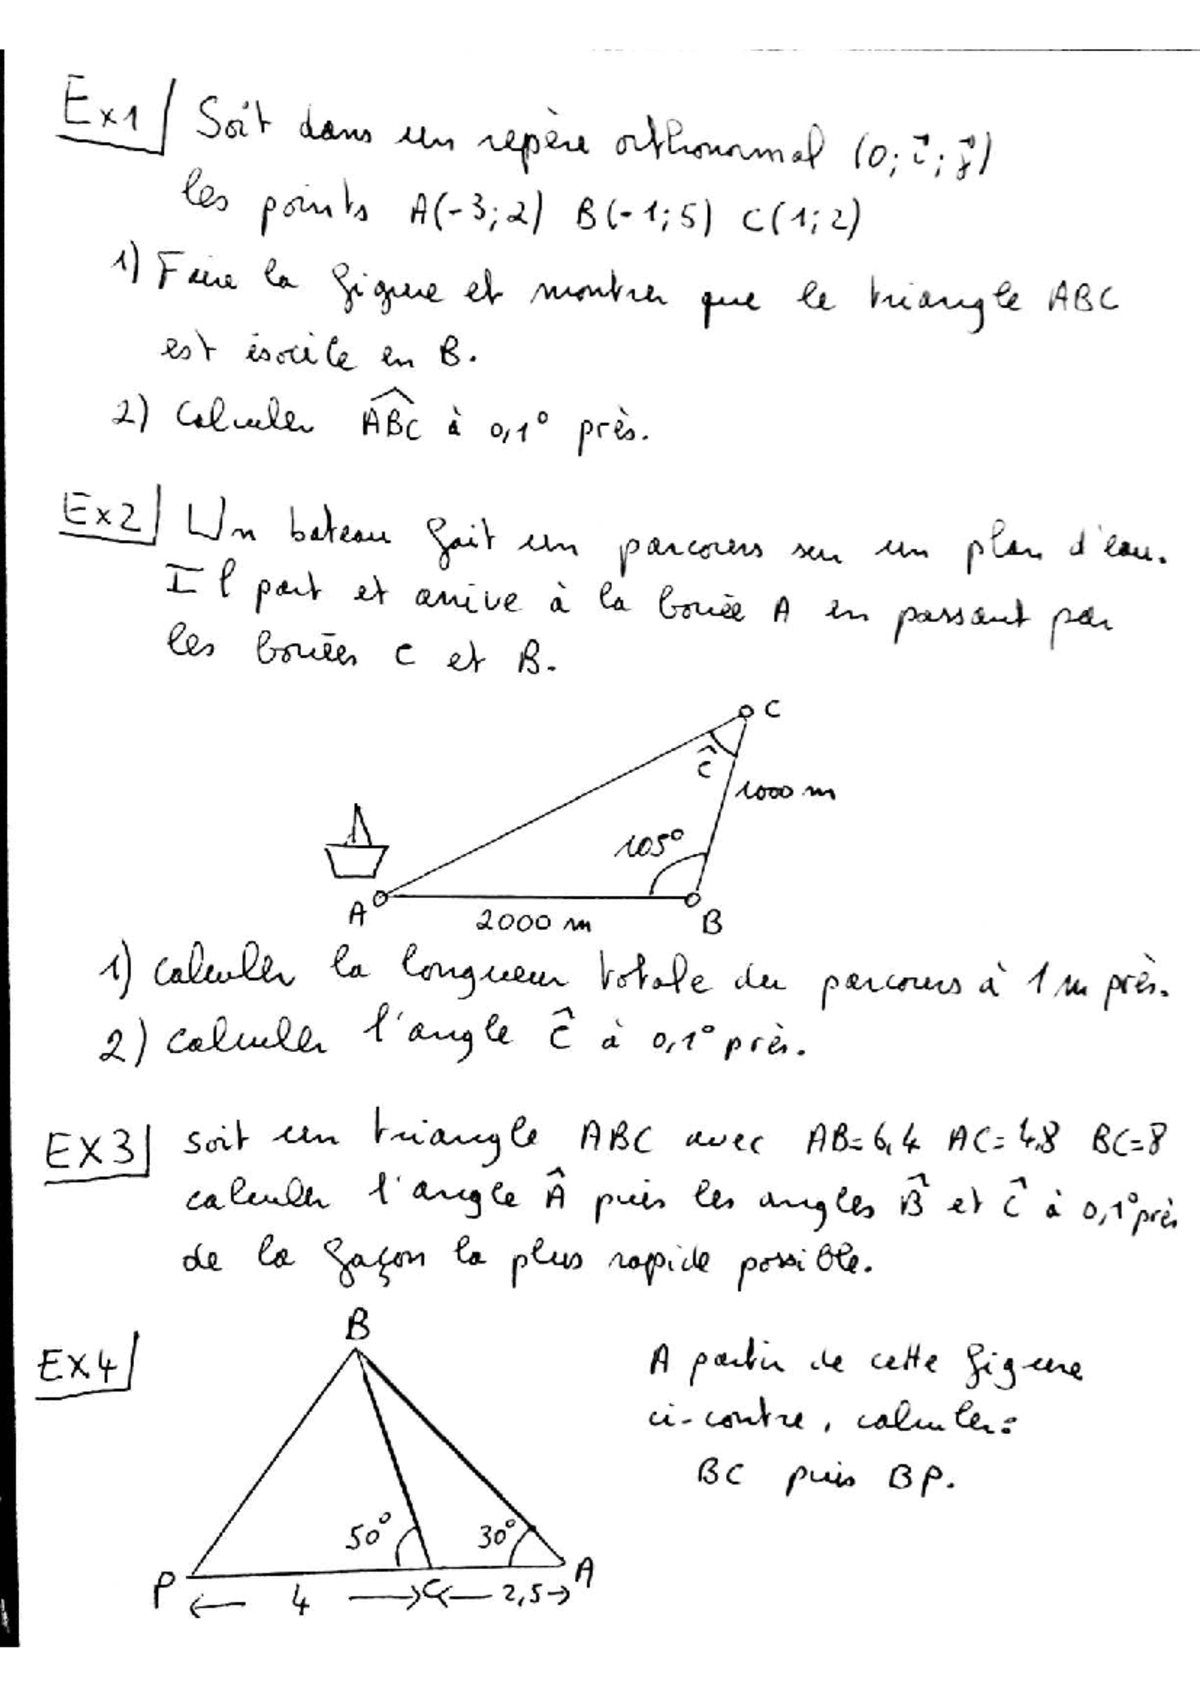 Ex1 Soit dans un repère orthonormal (O; i⃗; j⃗)
les points A(-3;2) B(-1;5) C(1;2)
1) Faire la figure et montrer que le triangle ABC
est isocèle en B.
2) Calculer ABC à 0,1° près.
Ex2 Un bateau fait un parcours sur un plan d'eau.
Il part et arrive à la bouée A en passant par
les bouées C et B.
C
Ĉ
1000 m
105°
A
2000 m
B
1) Calculer la longueur totale du parcours à 1 m près.
2) Calculer l'angle Ĉ à 0,1° près.
EX3 soit un triangle ABC avec AB=6,4 AC=4,8 BC=8
calculer l'angle Â puis les angles B̂ et Ĉ à 0,1° près
de la façon la plus rapide possible.
EX4
B
A partir de cette figure
ci-contre, calculer:
BC puis BP.
50°
30°
P
4
C
2,5
A